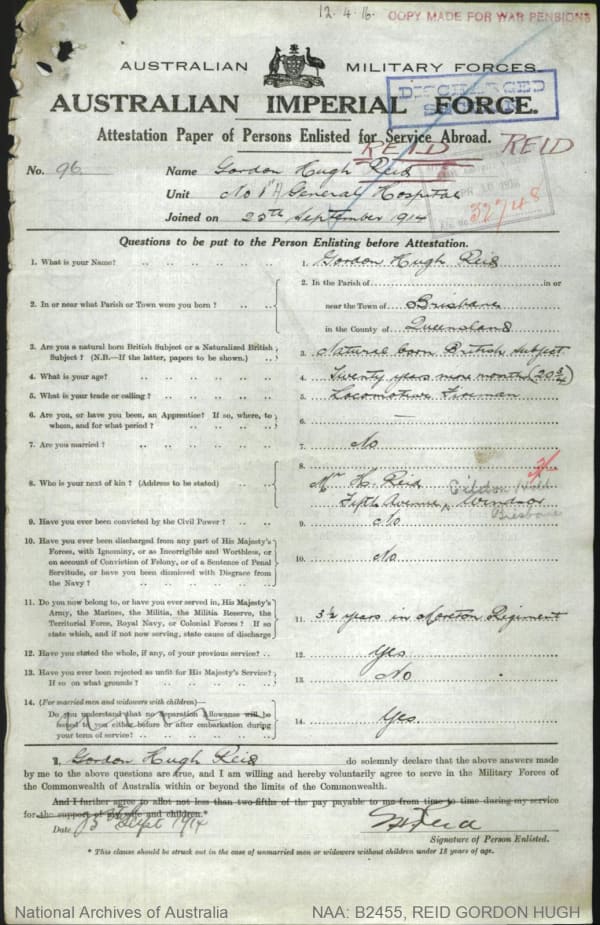 12.4.16. COPY MADE FOR WAR PENSIONS
AUSTRALIAN MILITARY FORCES.
DISCHARGED
AUSTRALIAN IMPERIAL FORCE.
Attestation Paper of Persons Enlisted for Service Abroad.
REID REID
No. 96 Name Gordon Hugh Reid
Unit No 1 A General Hospital
32748
Joined on 25th September 1914
Questions to be put to the Person Enlisting before Attestation.
1. What is your Name? 1. Gordon Hugh Reid
2. In or near what Parish or Town were you born? 2. In the Parish of in or
near the Town of Brisbane
in the County of Queensland
3. Are you a natural born British Subject or a Naturalized British
Subject? (N.B.—If the latter, papers to be shown.) 3. Natural born British Subject
4. What is your age? 4. Twenty years nine months (20 3/4)
5. What is your trade or calling? 5. Locomotive Fireman
6. Are you, or have you been, an Apprentice? If so, where, to
whom, and for what period? 6. —
7. Are you married? 7. No
8. Who is your next of kin? (Address to be stated) 8. Mr H. Reid
Fifth Avenue, Windsor
Brisbane
9. Have you ever been convicted by the Civil Power? 9. No
10. Have you ever been discharged from any part of His Majesty's
Forces, with Ignominy, or as Incorrigible and Worthless, or
on account of Conviction of Felony, or of a Sentence of Penal
Servitude, or have you been dismissed with Disgrace from
the Navy? 10. No
11. Do you now belong to, or have you ever served in, His Majesty's
Army, the Marines, the Militia, the Militia Reserve, the
Territorial Force, Royal Navy, or Colonial Forces? If so
state which, and if not now serving, state cause of discharge 11. 3½ years in Moreton Regiment
12. Have you stated the whole, if any, of your previous service? 12. Yes
13. Have you ever been rejected as unfit for His Majesty's Service?
If so on what grounds? 13. No
14. (For married men and widowers with children)—
Do you understand that no Separation Allowance will be
issued to you either before or after embarkation during
your term of service? 14. Yes.
I, Gordon Hugh Reid do solemnly declare that the above answers made
by me to the above questions are true, and I am willing and hereby voluntarily agree to serve in the Military Forces of
the Commonwealth of Australia within or beyond the limits of the Commonwealth.
And I further agree to allot not less than two-fifths of the pay payable to me from time to time during my service
for the support of my wife and children.*
Date Sept 1914 Reid
Signature of Person Enlisted.
* This clause should be struck out in the case of unmarried men or widowers without children under 18 years of age.
National Archives of Australia NAA: B2455, REID GORDON HUGH